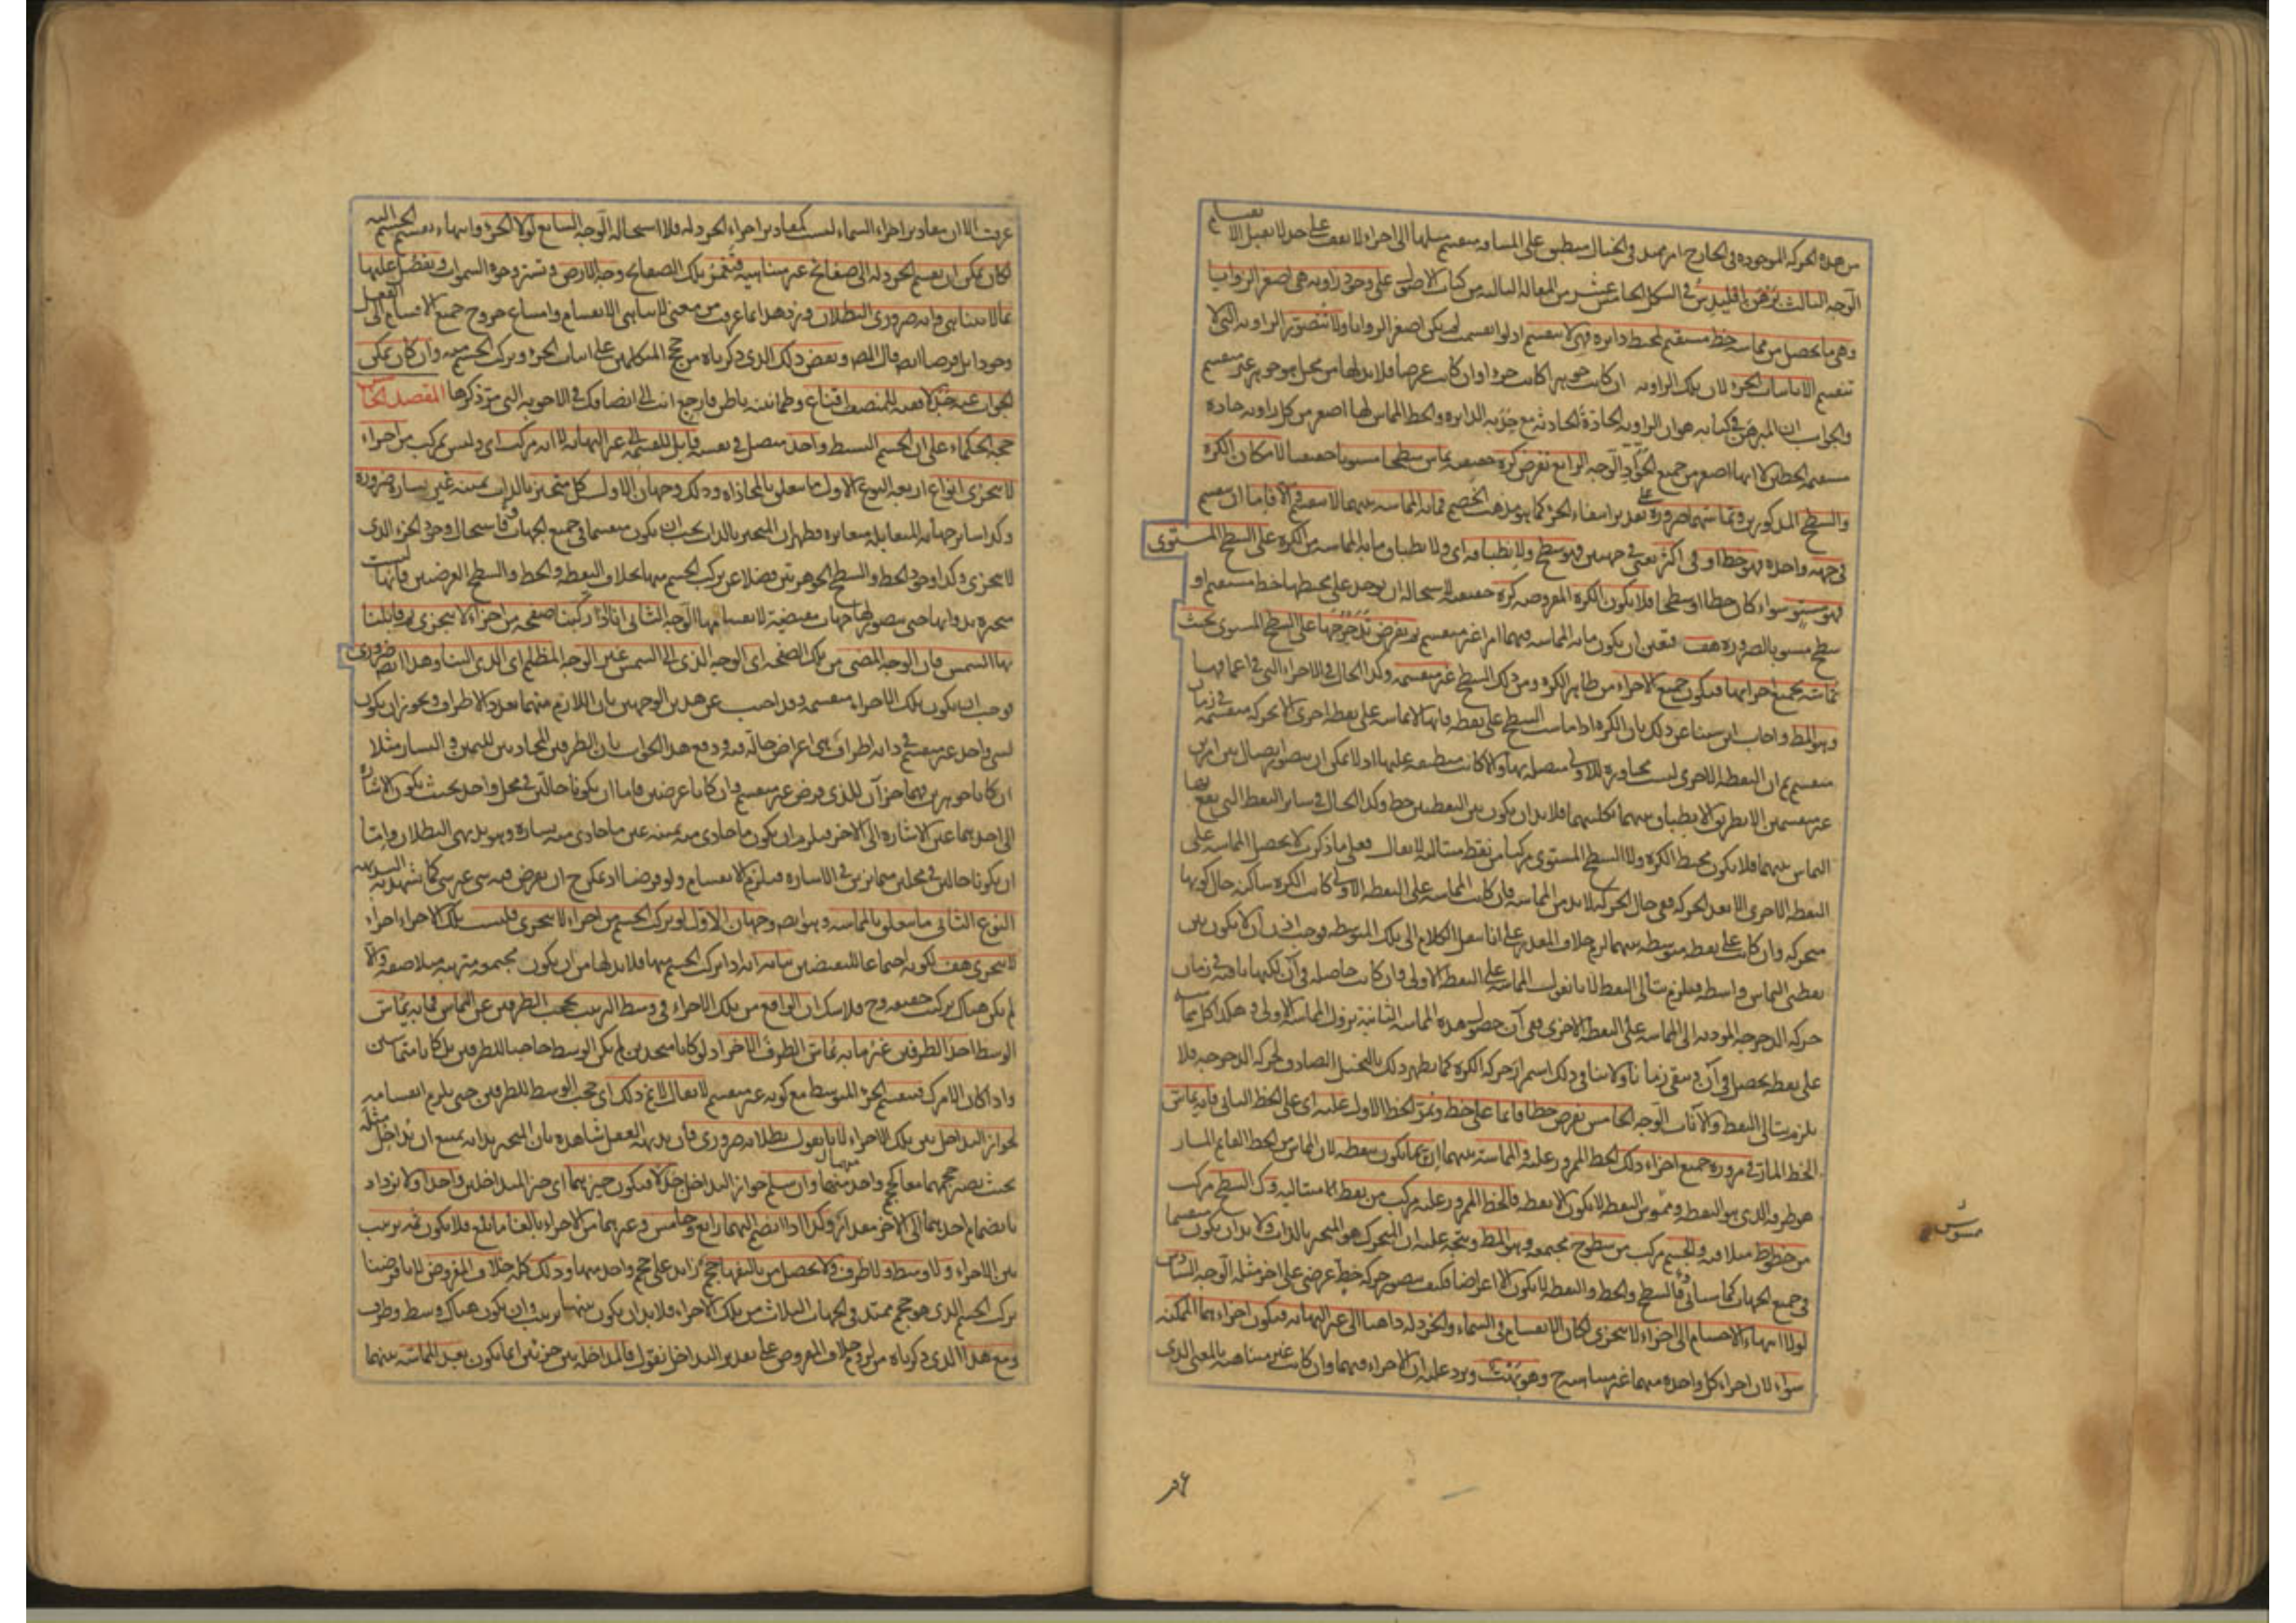 من هذه الحركة الموجودة في الخارج امر ممتد في الخيال منطبق على المسافة منقسم مثلها الى اجزاء لا تقف على حد لا تقبل الانقسام
الوجه الثالث برهن اقليدس في الشكل الخامس عشر من المقالة الثالثة من كتاب الاصول على وجود زاوية هي اصغر الزوايا
وهي ما تحصل من مماسة خط مستقيم لمحيط دايرة فهي لا تنقسم اذ لو انقسمت لم يكن اصغر الزوايا ولا تتصور الزاوية التي لا
تنقسم الا باثبات الجزء لان تلك الزاوية ان كانت جوهرا كانت جزءا وان كانت عرضا فلا بد لها من محل جوهر غير منقسم
والجواب ان المبرهن في كتابه هو ان الزاوية الحادة الحادثة مع حدبة الدايرة والخط المماس لها اصغر من كل زاوية حادة
مستقيمة الخطين لا انها اصغر من جميع الحواد الوجه الرابع نفرض كرة حقيقية تماس سطحا مستويا حقيقيا لامكان الكرة
والسطح المذكورين وتماسهما ضرورة على تقدير انتفاء الجزء كما هو مذهب الخصم فما به المماسة بينهما لا ينقسم والا فاما ان ينقسم
في جهة واحدة فهو خط او في اكثر يعني في جهتين فهو سطح ولانطباقه اي ولانطباق ما به المماسة من الكرة على السطح المستوى
فهو مستو سواء كان خطا او سطحا فلا يكون الكرة المفروضة كرة حقيقية لاستحالة ان يوجد على محيطها خط مستقيم او
سطح مستو بالضرورة هف فتعين ان يكون ما به المماسة فيهما امرا غير منقسم ثم نفرض تدحرجها على السطح المستوى بحيث
تماسه بجميع اجزائها فيكون جميع الاجزاء من ظاهر الكرة ومن ذلك السطح غير منقسمة وكذا الحال في الاجزاء التي في اعماقهما
وهو المط واجاب ابن سينا عن ذلك بان الكرة اذا ماست السطح على نقطة فانها لا تماسه على نقطة اخرى الا بحركة منقسمة في زمان
منقسم ثم ان النقطة الاخرى ليست مجاورة للاولى متصلة بها والا كانت منطبقة عليها اذ لا يمكن ان يتصور اتصال بين امرين
غير منقسمين الا بطريق الانطباق بينهما بكليتهما فلا بد ان يكون بين النقطتين خط وكذا الحال في ساير النقط التي يقع بها
التماس بينهما فلا يكون محيط الكرة ولا السطح المستوى مركبا من نقط متتالية لا يقال فعلى ما ذكرت لا يحصل المماسة على
النقطة الاخرى الا بعد الحركة ففي حال الحركة لا بد من المماسة فان كانت المماسة على النقطة الاولى كانت الكرة ساكنة حال كونها
متحركة وان كانت على نقطة متوسطة بينهما لزم خلاف المقدر على انا ننقل الكلام الى تلك المتوسطة فوجب اذن ان لا يكون بين
نقطتي التماس واسطة فيلزم تتالى النقط لانا نقول المماسة على النقطة الاولى وان كانت حاصلة في آن لكنها باقية في زمان
حركة الدحرجة المؤدية الى المماسة على النقطة الاخرى ففي آن حصول هذه المماسة الثانية تزول المماسة الاولى وهكذا كل مماسة
على نقطة تحصل في آن وتبقى زمانا ولا ينافي ذلك استمرار حركة الكرة كما يظهر ذلك بالتخيل الصادق لحركة الدحرجة فلا
يلزم تتالى النقط والآنات الوجه الخامس نفرض خطا قائما على خط ويمر الخط الاول عليه اي على الخط الثاني فانه يماس
الخط المار في مروره جميع اجزاء ذلك الخط الممرور عليه والمماسة بينهما انما يكون بنقطة لان المماس من الخط القايم المار
هو طرفه الذي هو النقطة وممسوس النقطة لا يكون الا نقطة فالخط الممرور عليه مركب من نقط متتالية وكذا السطح مركب
من خطوط متلاقية والجسم مركب من سطوح مجتمعة وهو المط ويتجه عليه ان المتحرك هو المتحيز بالذات ولا بد ان يكون منقسما
في جميع الجهات كما سيأتي والسطح والخط والنقطة لا يكون الا اعراضا فكيف يتصور حركة خط عرضي على اخر مثله الوجه السادس
لولا انتهاء الاجسام الى اجزاء لا تتجزى لكان الانقسام في السماء والخردلة ذاهبا الى غير النهاية فيكون اجزاءهما الممكنة
سواء لان اجزاء كل واحدة منهما غير متناهية ح وهو بهت ويرد عليه ان الاجزاء فيهما وان كانت غير متناهية بالمعنى الذي
مسوس
عرفت الا ان مقادير اجزاء السماء ليست كمقادير اجزاء الخردلة فلا استحالة الوجه السابع لولا الجزء وانتهاء تقسيم الجسم اليه
لكان يمكن ان يقسم الخردلة الى صفائح غير متناهية فتغمر بتلك الصفائح وجه الارض وتستر وجوه السموات ويفضل عليها
بما لا يتناهى وانه ضروري البطلان ويرد هذا بما عرفت من معنى لا تناهي الانقسام وامتناع خروج جميع الاقسام الى الفعل
وجودا بل فرضا ايض قال المص وبعض ذلك الذي ذكرناه من حجج المتكلمين على اثبات الجزء وتركب الجسم منه وان كان يمكن
الجواب عنه جدلا ففيه للمنصف اقناع وطمانينة باطن فارجع انت الى انصافك في الاجوبة التي مر ذكرها المقصد الخامس
حجة الحكماء على ان الجسم البسيط واحد متصل في نفسه قابل للقسمة الى غير النهاية لا انه مركب اي وليس بمركب من اجزاء
لا تتجزى انواع اربعة النوع الاول ما يتعلق بالمحاذاة وذلك وجهان الاول كل متحيز بالذات يمينه غير يساره ضرورة
وكذا ساير جهاته المتقابلة متغايرة فظهر ان المتحيز بالذات يجب ان يكون منقسما في جميع الجهات فاستحال وجود الجزء الذي
لا يتجزى وكذا وجود الخط والسطح الجوهرين فضلا عن تركب الجسم منها بخلاف النقط والخط والسطح العرضيين فانها ليست
متحيزة بذواتها حتى يتصور لها جهات مقتضية لانقسامها الوجه الثاني انا اذا ركبنا صفحة من اجزاء لا تتجزى ثم قابلنا
بها الشمس فان الوجه المضئ من تلك الصفحة اي الوجه الذي الى الشمس غير الوجه المظلم اي الذي الينا وهذا ايض ضروري
فوجب ان يكون تلك الاجزاء منقسمة وقد اجيب عن هذين الوجهين بان اللازم منهما تعدد الاطراف ويجوز ان يكون
لشيء واحد غير منقسم في ذاته اطراف هي اعراض حالة فيه ودفع هذا الجواب بان الطرفين المحاذيين لليمين واليسار مثلا
ان كانا جوهرين فهما جزآن للذي فرض غير منقسم وان كانا عرضين فاما ان يكونا حالين في محل واحد بحيث يكون الاشارة
الى احدهما عين الاشارة الى الاخر فيلزم ان يكون ما حاذى منه يمينه عين ما حاذى منه يساره وهو بديهي البطلان واما
ان يكونا حالين في محلين متمايزين في الاشارة فيلزم الانقسام ولو فرضا اذ يمكن ح ان يفرض فيه شيء غير شيء كما تشهد به البديهة
النوع الثاني ما يتعلق بالمماسة وهو ايض وجهان الاول لو تركب الجسم من اجزاء لا تتجزى فليست تلك الاجزاء اجزاء
لا تتجزى هف لكونه اجتماعا للنقيضين بيانه انه اذا تركب الجسم منها فلا بد لها من ان يكون مجتمعة مترتبة متلاصقة والا
لم يكن هناك تركب حقيقة وح فلا شك ان الواقع من تلك الاجزاء في وسط الترتيب يحجب الطرفين عن التماس فما به يماس
الوسط احد الطرفين غير ما به يماس الطرف الاخر اذ لو كانا متحدين لم يكن الوسط حاجبا للطرفين بل كانا متماسين
واذا كان الامر كذلك فينقسم الجزء المتوسط مع كونه غير منقسم لا يقال لا نم ذلك اي حجب الوسط للطرفين حتى يلزم انقسامه
لجواز التداخل بين تلك الاجزاء لانا نقول بطلانه ضروري فان بديهة العقل شاهدة بان المتحيز بذاته يمتنع ان يداخل مثله
بحيث يصير حجمهما معا كحجم واحد منهما وان سلم جواز التداخل جدلا فيكون حيزهما اي حيز المتداخلين واحدا ولا يزداد
بانضمام احدهما الى الاخر مقدار وكذا اذا انضم اليهما رابع وخامس وغيرهما من الاجزاء بالغا ما بلغ فلا يكون ثمه ترتيب
بين الاجزاء ولا وسط ولا طرف ولا يحصل من تاليفها حجم زايد على حجم واحد منها وذلك كله خلاف المفروض لانا فرضنا
تركب الجسم الذي هو حجم ممتد في الجهات الثلاث من تلك الاجزاء فلا بد ان يكون بينها ترتيب وان يكون هناك وسط وطرف
ومع هذا الذي ذكرناه من لزوم خلاف المفروض على تقدير التداخل نقول فالمداخلة بين جزئين انما يكون بعد المماسة بينهما